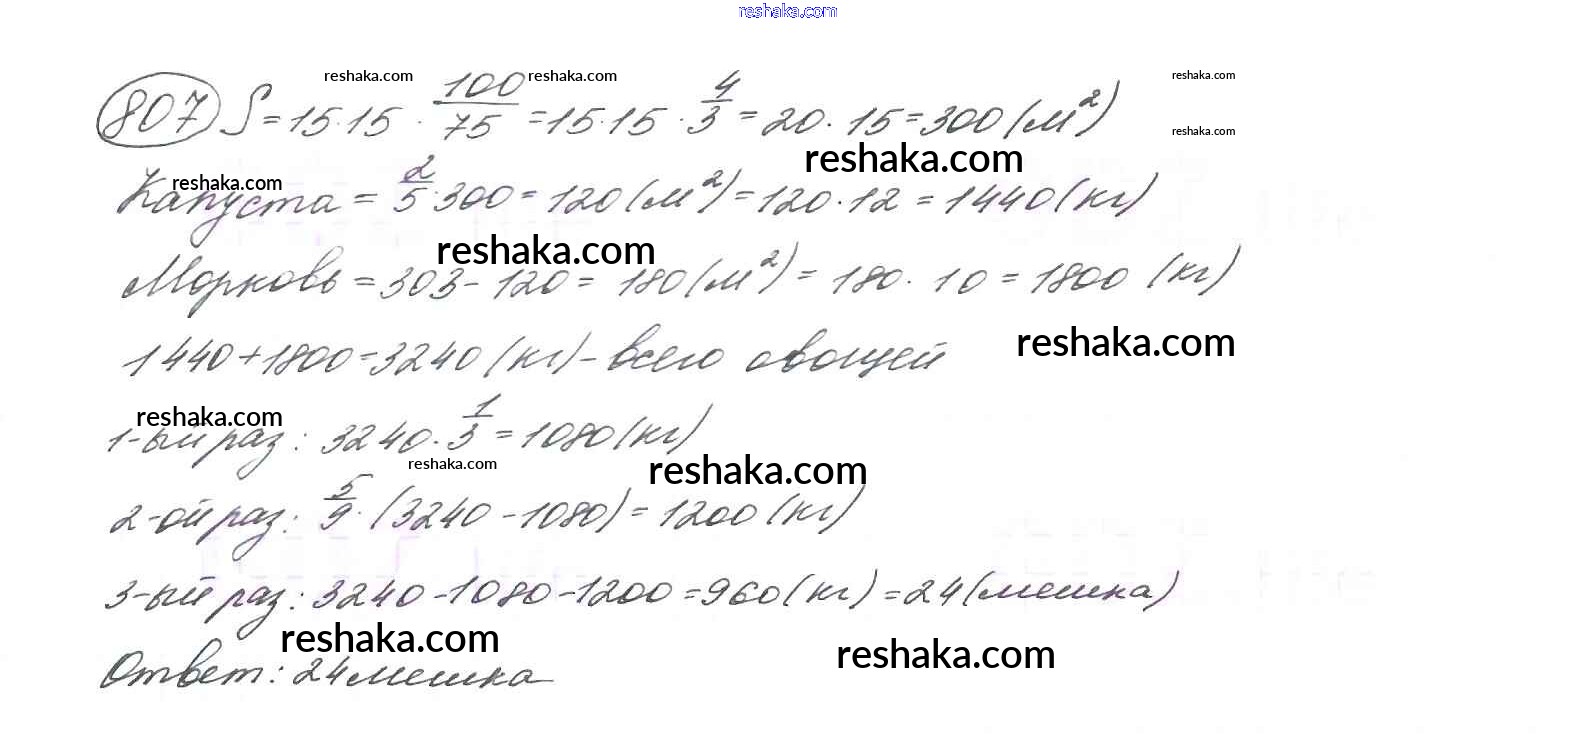 reshaka.com
reshaka.com reshaka.com reshaka.com
807 S = 15·15 · 100/75 = 15·15 · 4/3 = 20 · 15 = 300 (м²)
reshaka.com
reshaka.com
reshaka.com
Капуста = 2/5 · 300 = 120 (м²) = 120 · 12 = 1440 (кг)
reshaka.com
Морковь = 303 - 120 = 180 (м²) = 180 · 10 = 1800 (кг)
reshaka.com
1440 + 1800 = 3240 (кг) - всего овощей
reshaka.com
1-ый раз: 3240 · 1/3 = 1080 (кг)
reshaka.com reshaka.com
2-ой раз: 5/9 · (3240 - 1080) = 1200 (кг)
3-ый раз: 3240 - 1080 - 1200 = 960 (кг) = 24 (мешка)
reshaka.com reshaka.com
Ответ: 24 мешка